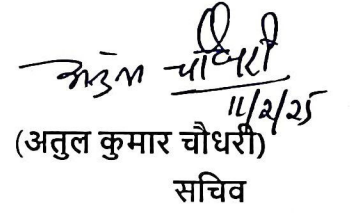 अतुल चौधरी
11/2/25
(अतुल कुमार चौधरी)
सचिव